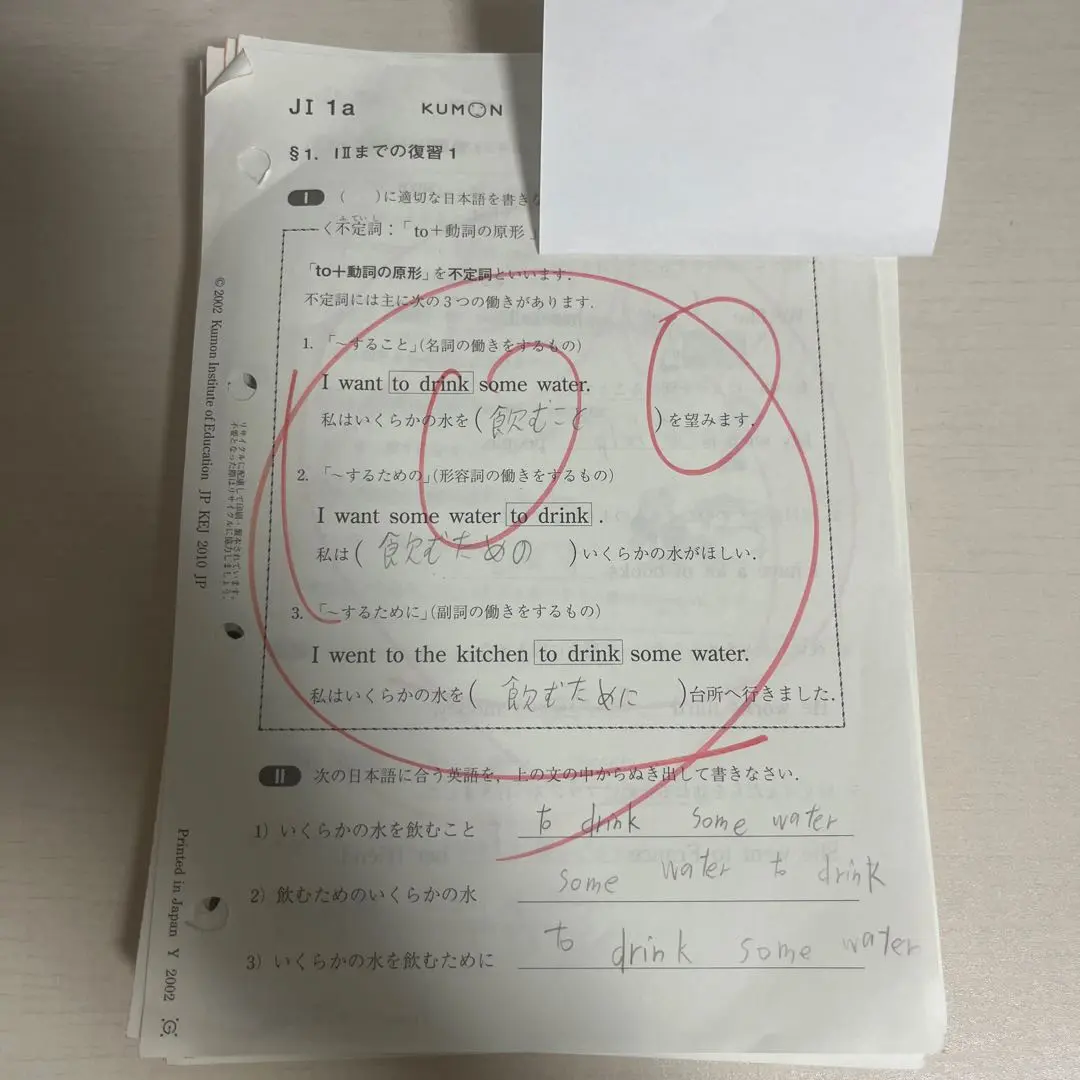 JI 1a KUMON
§1. IⅡまでの復習1
I ( )に適切な日本語を書きな
ふていし
く不定詞:「to+動詞の原形」
「to+動詞の原形」を不定詞といいます.
不定詞には主に次の3つの働きがあります.
1. 「~すること」(名詞の働きをするもの)
I want to drink some water.
私はいくらかの水を(飲むこと)を望みます.
2. 「~するための」(形容詞の働きをするもの)
I want some water to drink.
私は(飲むための)いくらかの水がほしい.
3. 「~するために」(副詞の働きをするもの)
I went to the kitchen to drink some water.
私はいくらかの水を(飲むために)台所へ行きました.
II 次の日本語に合う英語を, 上の文の中からぬき出して書きなさい.
1) いくらかの水を飲むこと to drink some water
2) 飲むためのいくらかの水 some water to drink
3) いくらかの水を飲むために to drink some water
© 2002 Kumon Institute of Education JP KEJ 2010 JP
リサイクルに配慮して印刷・製本されています。
不要となった際はリサイクルに協力しましょう。
Printed in Japan Y 2002